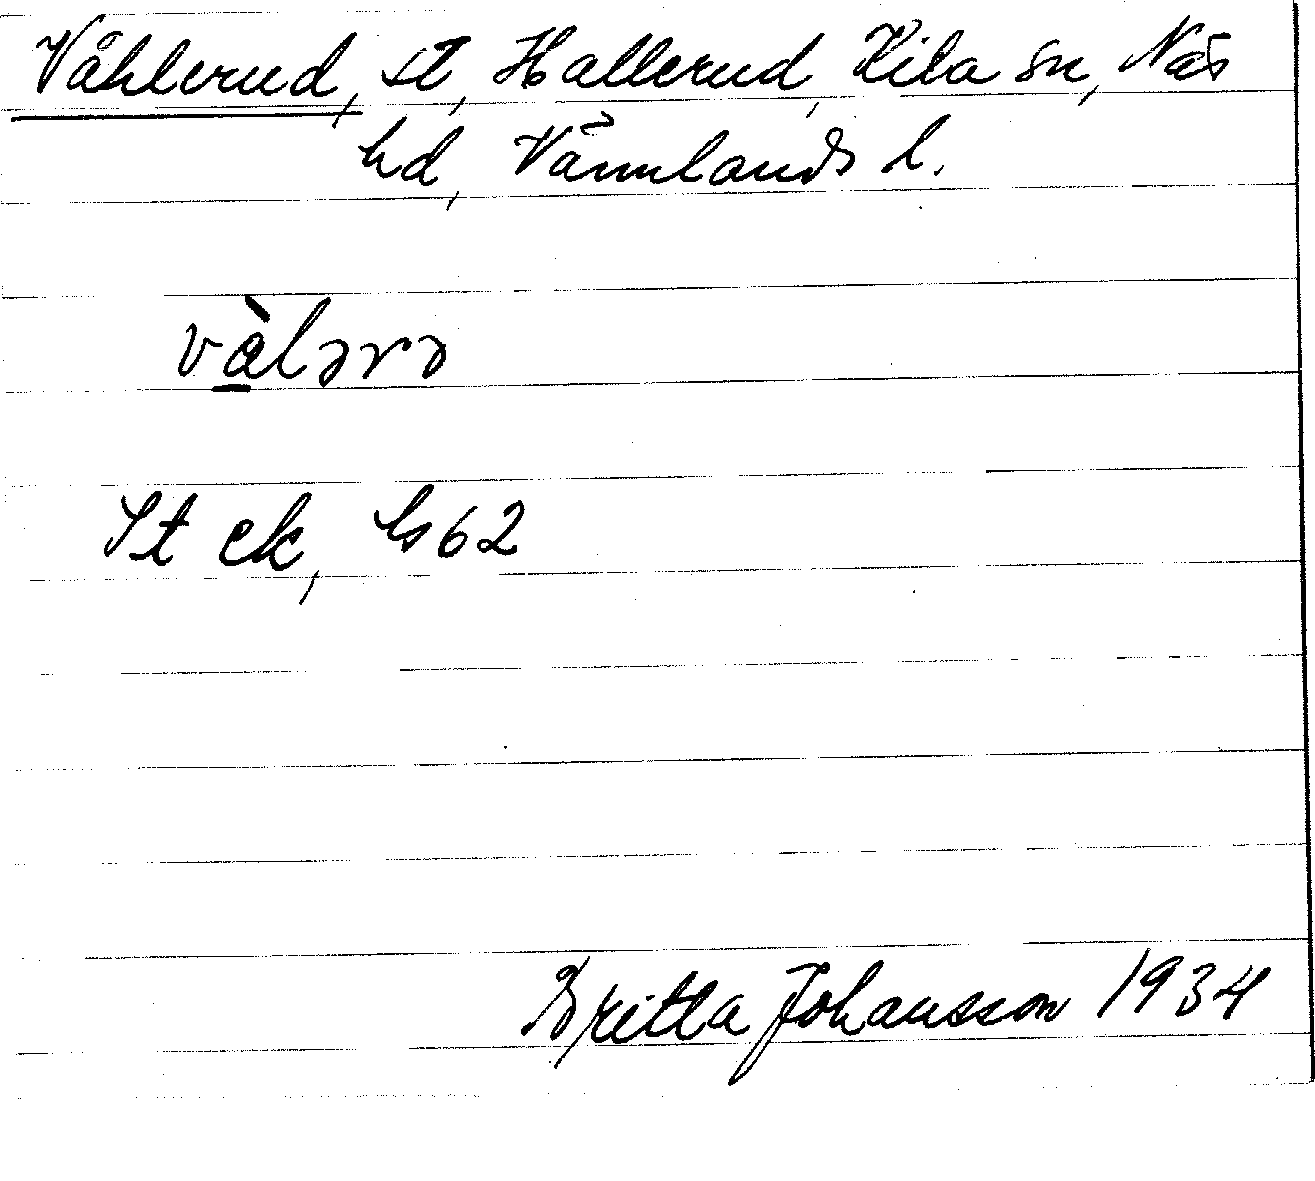 Våhlerud, st, Hallerud, Kila sn, Näs
hd, Värmlands l.
vàlərə
St ek, ls 62
Britta Johansson 1934